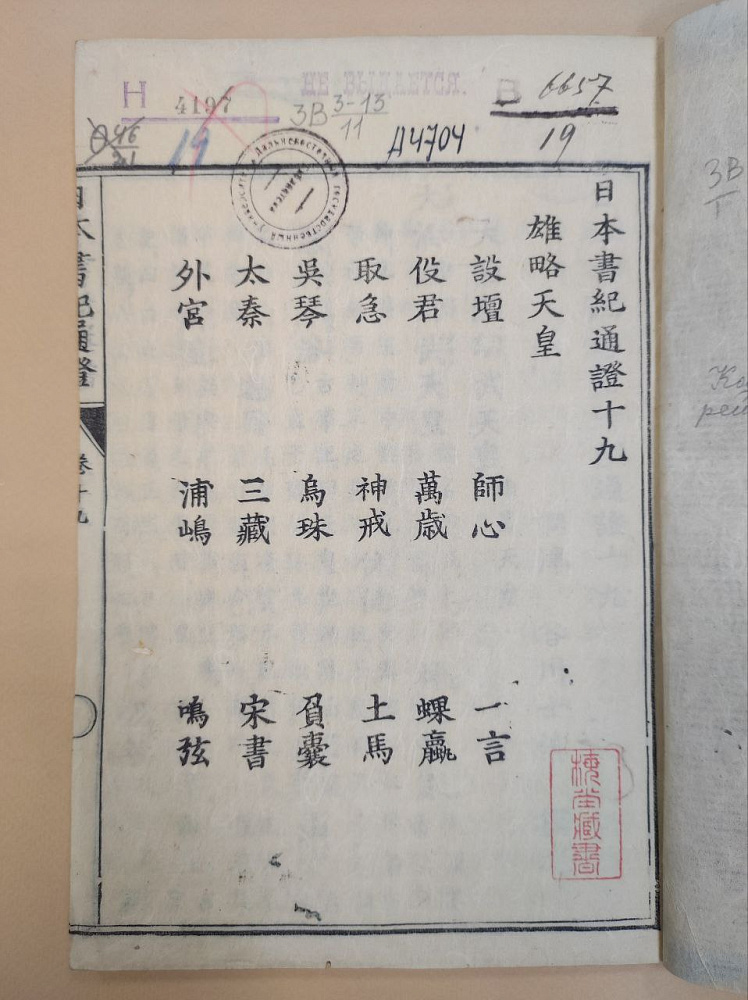 НЕ ВЫДАЕТСЯ.
Н 4197
В 6657
3В 3-13
11
19
Д4704
19
46
21
日本書紀通證十九
雄略天皇
設壇 師心 一言
伇君 萬歳 蜾蠃
取急 神戒 土馬
吳琴 烏珠 負囊
太秦 三藏 宋書
外宮 浦嶋 鳴弦
日本書紀通證
卷十九
梅堂藏書
Дальневосточный государственный университет
3В